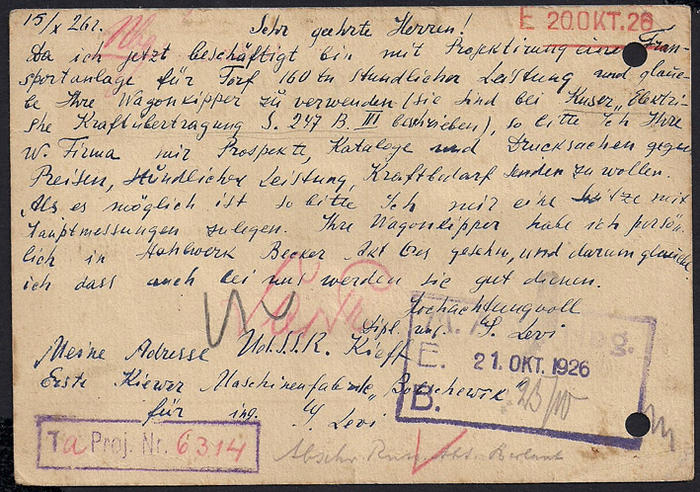 15/X 26 г.
Sehr geehrte Herren!
E 20.OKT.26
Da ich jetzt beschäftigt bin mit Projektirung einer Tran-
sportanlage für Torf 160 tn stündlicher Leistung und glau-
be Ihre Wagonkipper zu verwenden (sie sind bei Kuser „Elektri-
she Kraftübertragung S. 247 B. III beschrieben), so bitte Ich Ihre
W. Firma mir Prospekte, Kataloge und Drucksachen gegen
Preisen, Stündlicher Leistung, Kraftbedarf senden zu wollen.
Als es möglich ist so bitte Ich mir eine mit
Hauptmessungen zulegen. Ihre Wagonkipper habe ich persön-
lich in Becker Akt Ges gesehn, und darum glaube
ich dass auch bei uns werden sie gut dienen.
Hochachtungvoll
Dipl. ing. Levi
Meine Adresse Ud.S.S.R. Kieff
Erste Kiewer Maschinenfabrik „Bolschewik“
für ing. Levi
E. 21. OKT. 1926
B. 23/10
Ta Proj. Nr. 6314